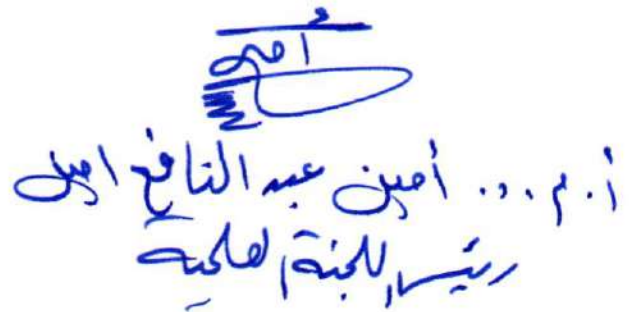 أمين
أ.م... أمين عبد النافع امين
رئيس اللجنة العلمية